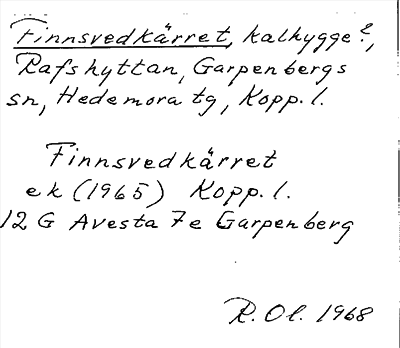 Finnsvedkärret, kalhygge?,
Rafshyttan, Garpenbergs
sn, Hedemora tg, Kopp. l.
Finnsvedkärret
ek (1965) Kopp. l.
12 G Avesta 7e Garpenberg
R. Ol. 1968